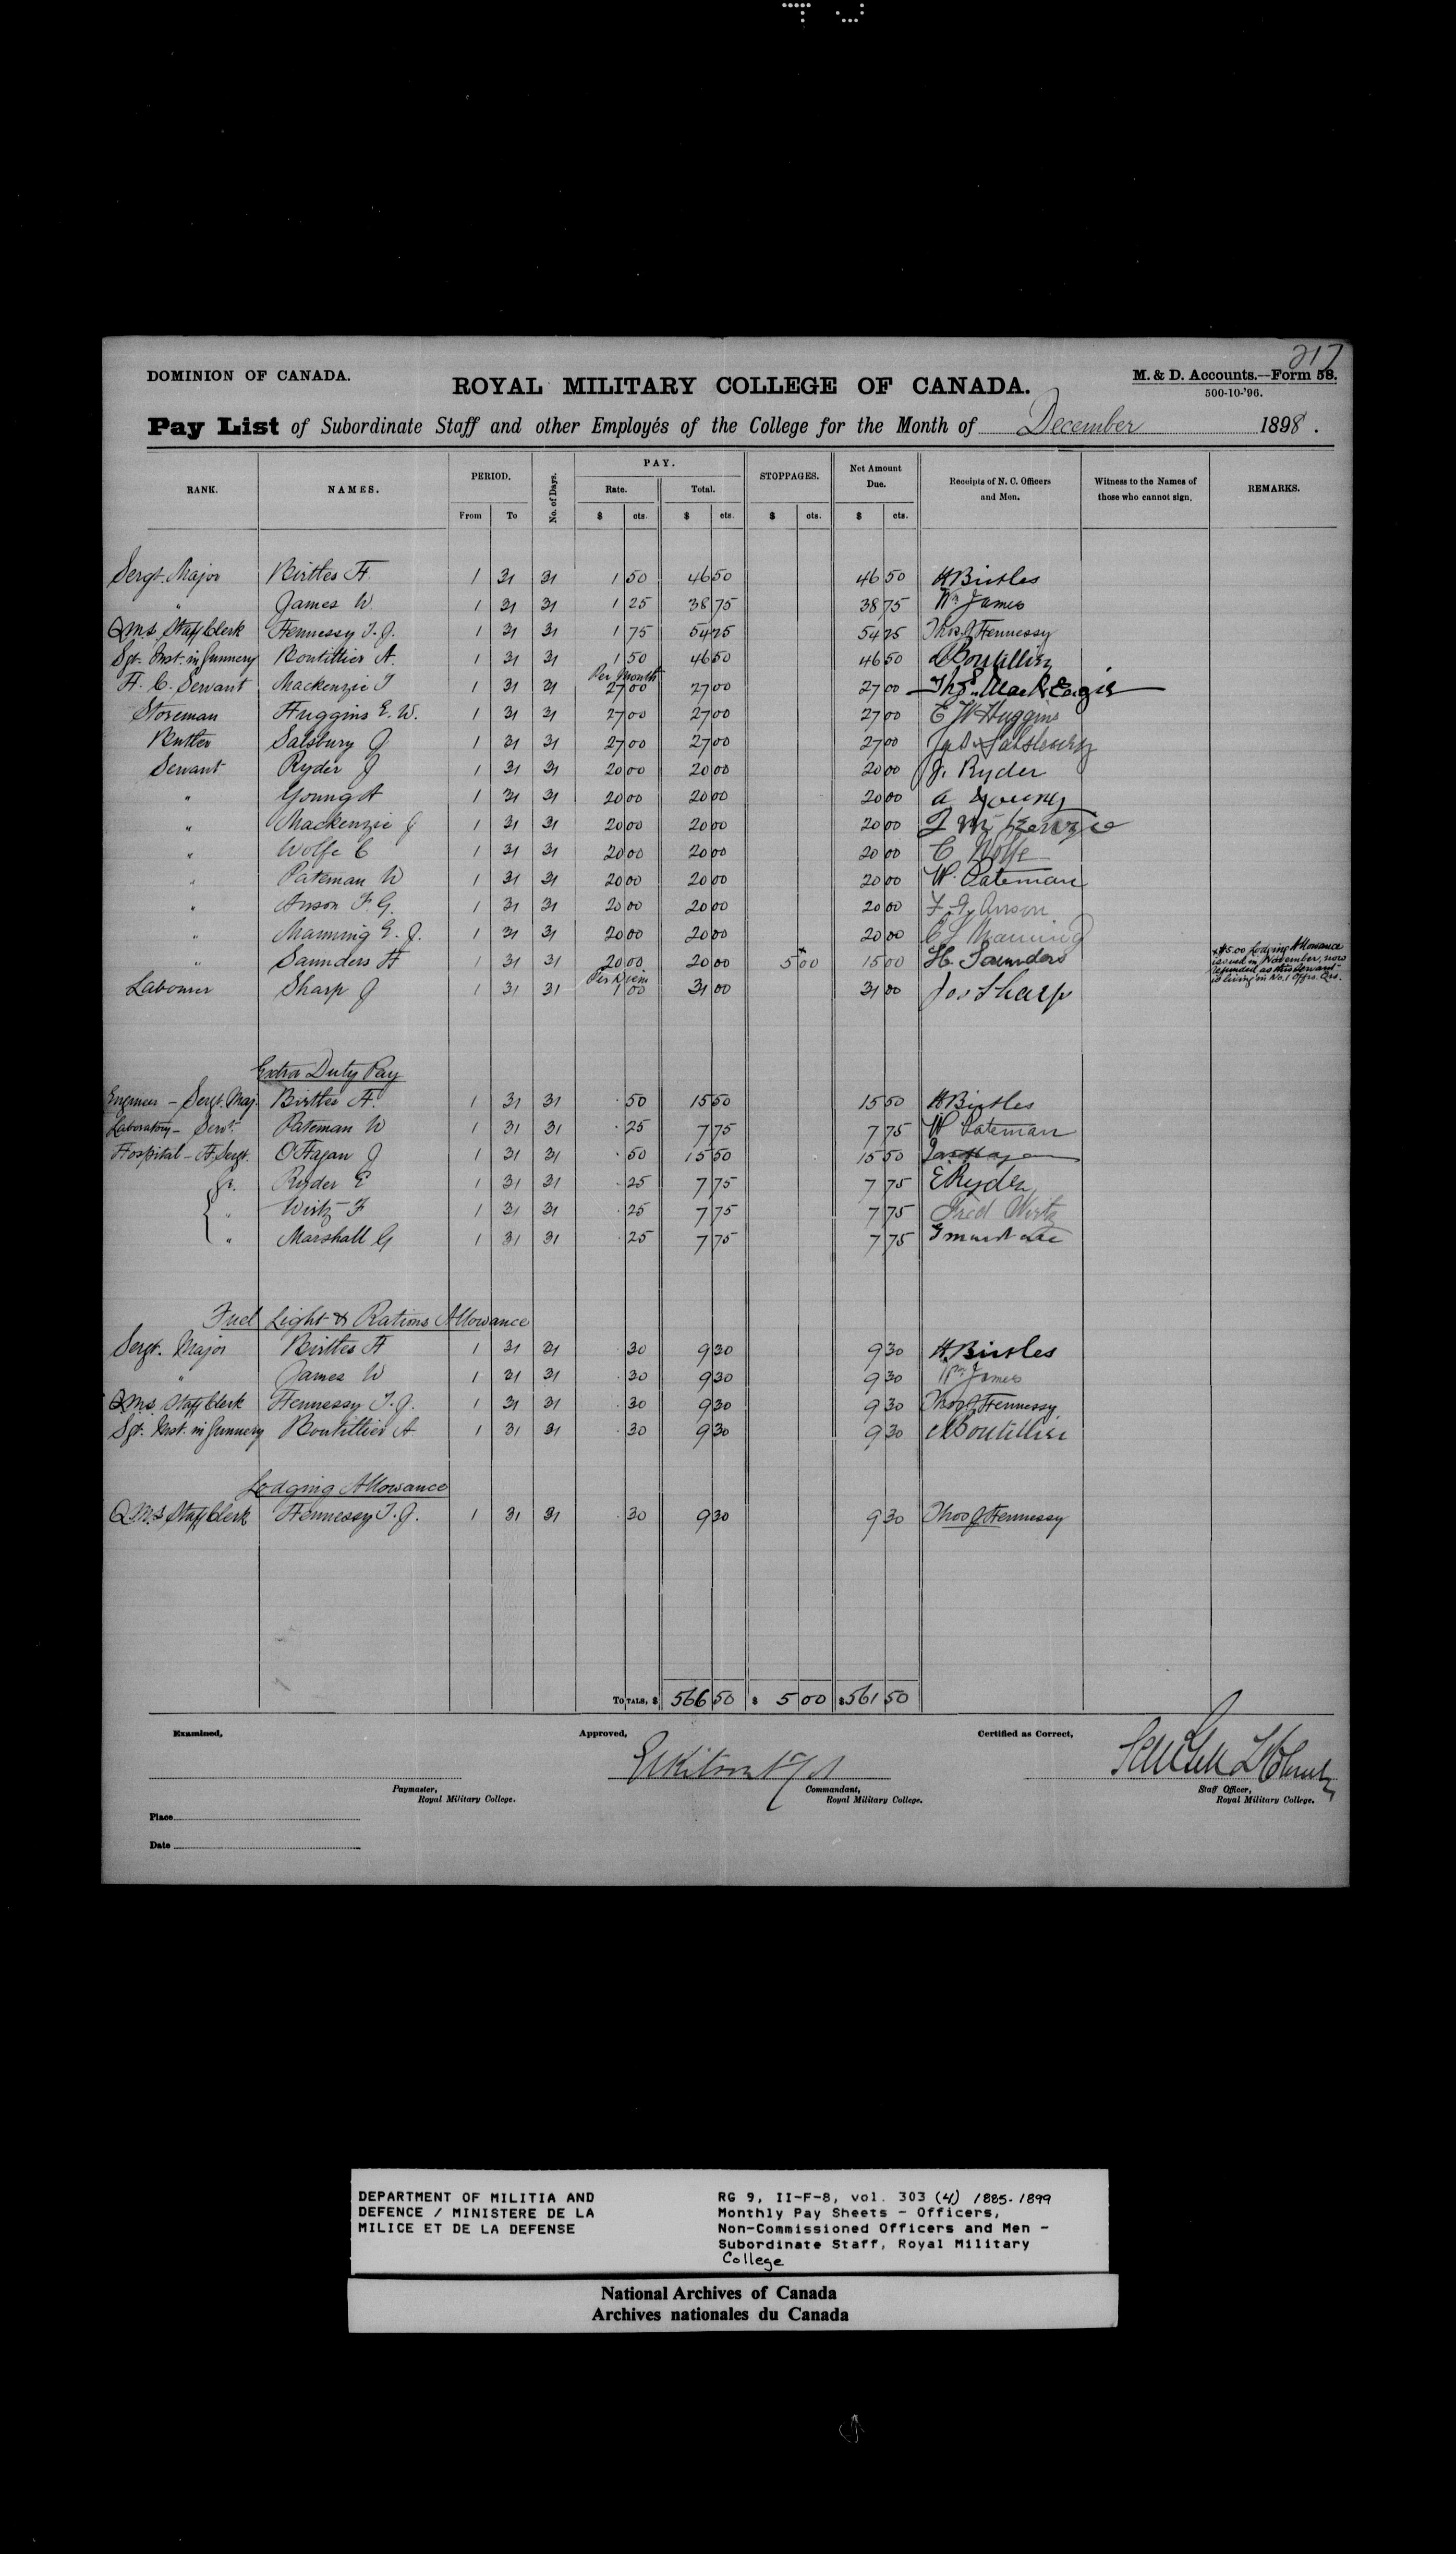 217
DOMINION OF CANADA.
ROYAL MILITARY COLLEGE OF CANADA.
M. & D. Accounts.—Form 58.
500-10-'96.
Pay List of Subordinate Staff and other Employés of the College for the Month of December 1898.
RANK. NAMES. PERIOD. From To No. of Days. PAY. Rate. $ cts. Total. $ cts. STOPPAGES. $ cts. Net Amount Due. $ cts. Receipts of N. C. Officers and Men. Witness to the Names of those who cannot sign. REMARKS.
Sergt. Major Birtles H. 1 31 31 1 50 46 50 46 50 H Birtles
" James W. 1 31 31 1 25 38 75 38 75 Wm James
Q.M.S. Staff Clerk Hennessy T. J. 1 31 31 1 75 54 25 54 25 Thos J Hennessy
Sgt. Inst. in Gunnery Boutillier A. 1 31 31 1 50 46 50 46 50 A Boutillier
Per Month
H. C. Servant Mackenzie T 1 31 31 27 00 27 00 27 00 Thos. MacKenzie
Storeman Huggins E. W. 1 31 31 27 00 27 00 27 00 E W Huggins
Butler Salsbury J 1 31 31 27 00 27 00 27 00 Jas Salsbury
Servant Ryder J 1 31 31 20 00 20 00 20 00 J. Ryder
" Young A 1 31 31 20 00 20 00 20 00 A Young
" Mackenzie J 1 31 31 20 00 20 00 20 00
" Wolfe C 1 31 31 20 00 20 00 20 00 C Wolfe
" Pateman W 1 31 31 20 00 20 00 20 00 W. Pateman
" Anson F. G. 1 31 31 20 00 20 00 20 00 F. G. Anson
" Manning E. J. 1 31 31 20 00 20 00 20 00 E J Manning
" Saunders H 1 31 31 20 00 20 00 5 00 x 15 00 H. Saunders x $5.00 Lodging Allowance issued in November, now refunded as this Servant is living in No. 1 Offrs. Qrs.
Per Diem
Labourer Sharp J 1 31 31 1 00 31 00 31 00 Jos Sharp
Extra Duty Pay
Engineer - Sergt. Maj. Birtles H. 1 31 31 . 50 15 50 15 50 H Birtles
Laboratory - Servt. Pateman W 1 31 31 . 25 7 75 7 75 W Pateman
Hospital - H. Sergt. O'Hagan J 1 31 31 . 50 15 50 15 50
Ryder E 1 31 31 . 25 7 75 7 75 E Ryder
" Wirtz F 1 31 31 . 25 7 75 7 75 Fred Wirtz
" Marshall G 1 31 31 . 25 7 75 7 75 G Marshall
Fuel Light & Rations Allowance
Sergt. Major Birtles H 1 31 31 . 30 9 30 9 30 H. Birtles
" James W 1 31 31 . 30 9 30 9 30 Wm James
Q.M.S. Staff Clerk Hennessy T. J. 1 31 31 . 30 9 30 9 30 Thos J Hennessy
Sgt. Inst. in Gunnery Boutillier A 1 31 31 . 30 9 30 9 30 A Boutillier
Lodging Allowance
Q.M.S. Staff Clerk Hennessy T. J. 1 31 31 . 30 9 30 9 30 Thos J Hennessy
TOTALS, $ 566 50 $ 5 00 $ 561 50
Examined, Approved, Certified as Correct,
Paymaster, Royal Military College.
Commandant, Royal Military College.
Staff Officer, Royal Military College.
Place
Date
DEPARTMENT OF MILITIA AND
DEFENCE / MINISTERE DE LA
MILICE ET DE LA DEFENSE
RG 9, II-F-8, vol. 303 (4) 1885-1899
Monthly Pay Sheets - Officers,
Non-Commissioned Officers and Men -
Subordinate Staff, Royal Military
College
National Archives of Canada
Archives nationales du Canada